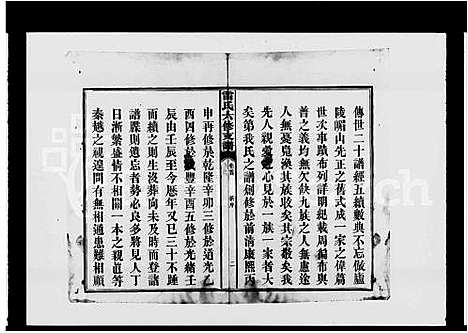 傳世二十譜經五續數典不忘倣廬
陵嵋山先正之舊式成一家之偉篇
世次事蹟布列詳明紀載周徧布與
普之義均無欠缺九族之人無慮途
人無憂鬼渙其族收矣其宗敬矣我
先人親愛之心見於一族一家者大
矣第我民之譜創修於前清康熙丙
雷氏六修支譜
卷首
二
申再修於乾隆辛卯三修於道光乙
酉四修於咸豐辛酉五修於光緒壬
辰由壬辰至今歷年又已三十不踵
而續之則生沒葬向未及時而登於
譜牒則遺忘者勢必良多將見人丁
日漸繁盛情不相關一本之親直等
秦越之視遠間有相通患難相顧